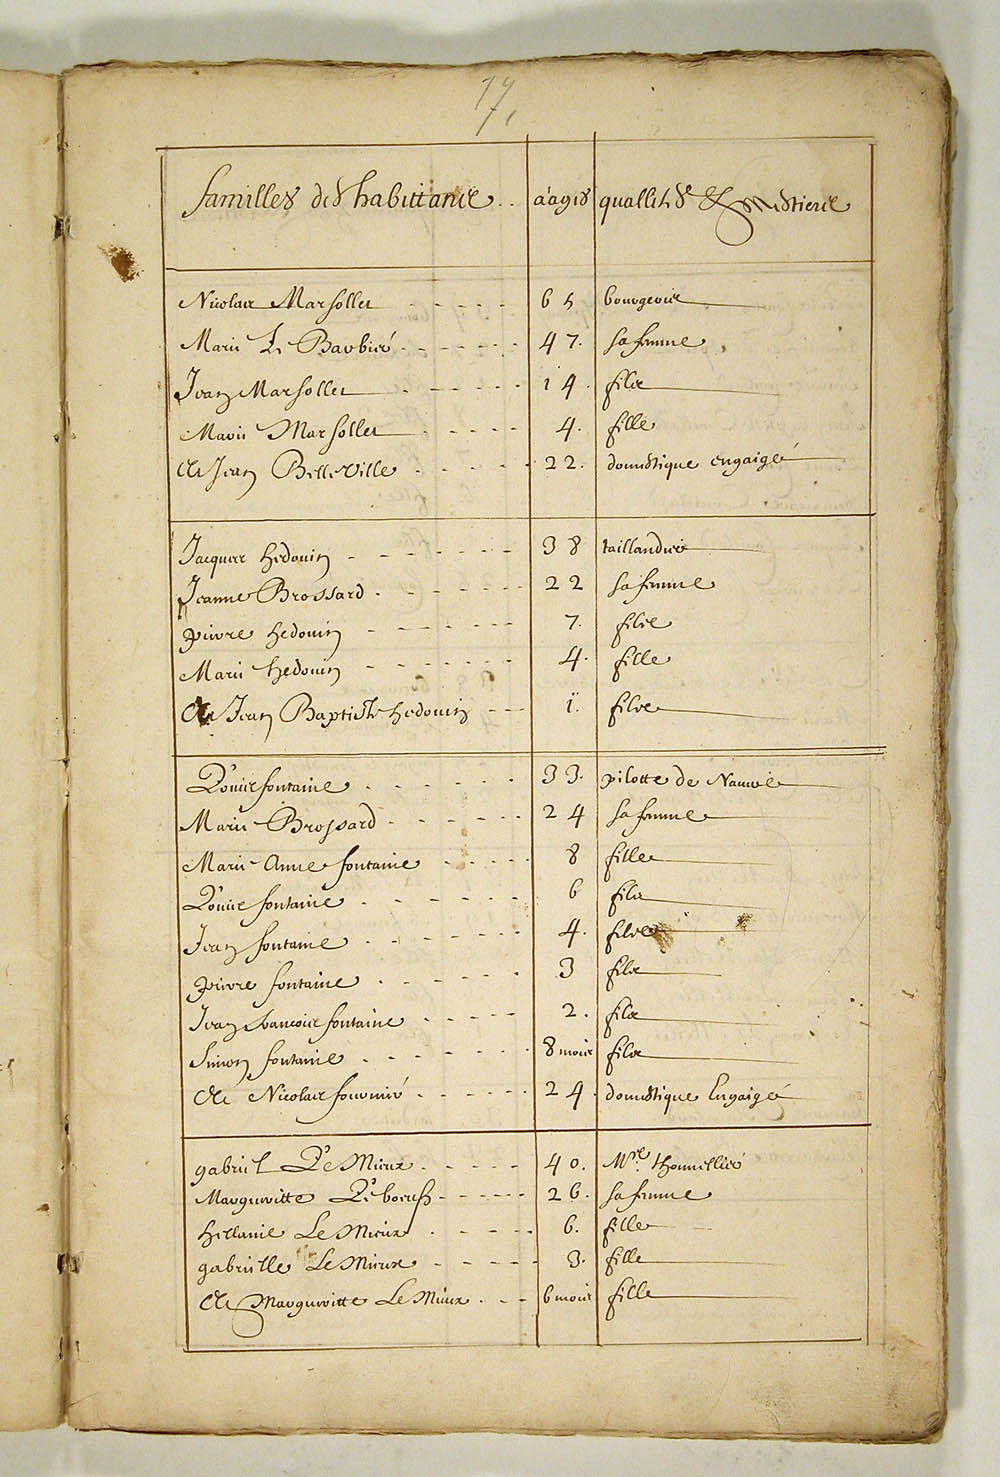 17,
familles des habittants.. aages quallités et mestiers
Nicolas Marsollet - - - - - 65 bourgeois
Marie Le Barbier - - - - - - 47. sa femme
Jean Marsollet - - - - - - 14. fils
Marie Marsollet - - - - - 4. fille
Et Jean Belleville - - - - - 22. domestique engaigé
Jacques hedouin - - - - - - - 38 taillandier
Jeanne Brossard - - - - - - 22 sa femme
pierre hedouin - - - - - - 7. fils
Marie hedouin - - - - - - - 4. fille
Et Jean Baptiste hedouin - - - 1. fils
Louis fontaine - - - - - - 33. pilotte de Navire
Marie Brossard - - - - - - 24 sa femme
Marie Anne fontaine - - - - - 8 fille
Louis fontaine - - - - - - 6 fils
Jean fontaine - - - - - - 4. fils
pierre fontaine - - - - - - 3 fils
Jean francois fontaine - - - - - 2. fils
Simon fontaine - - - - - - - 8 mois fils
Et Nicolas fournier - - - - - - 24. domestique Engaigé
gabriel Le Mieux - - - - - 40. Mre. thonnellier
Margueritte Le boeuf - - - - - 26. sa femme
hellaine Le Mieux - - - - - 6. fille
gabrielle Le Mieux - - - - - 3. fille
Et Margueritte Le Mieux - - - 6 mois fille